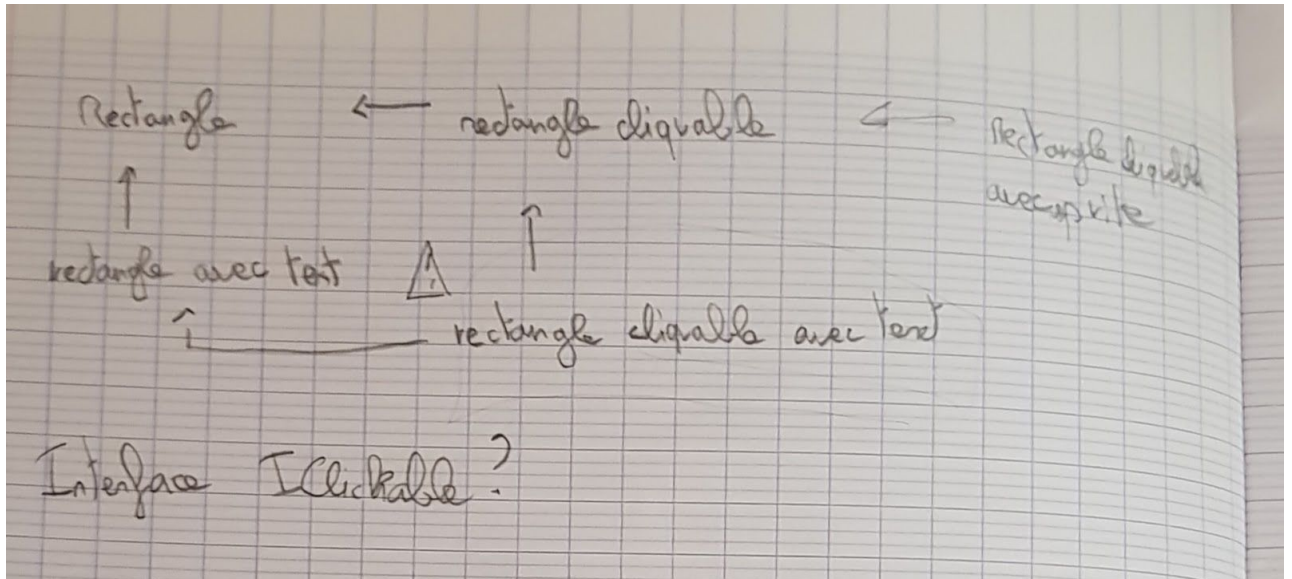 Rectangle rectangle cliquable Rectangle cliquable
avec sprite
rectangle avec text
rectangle cliquable avec text
Interface IClickable ?